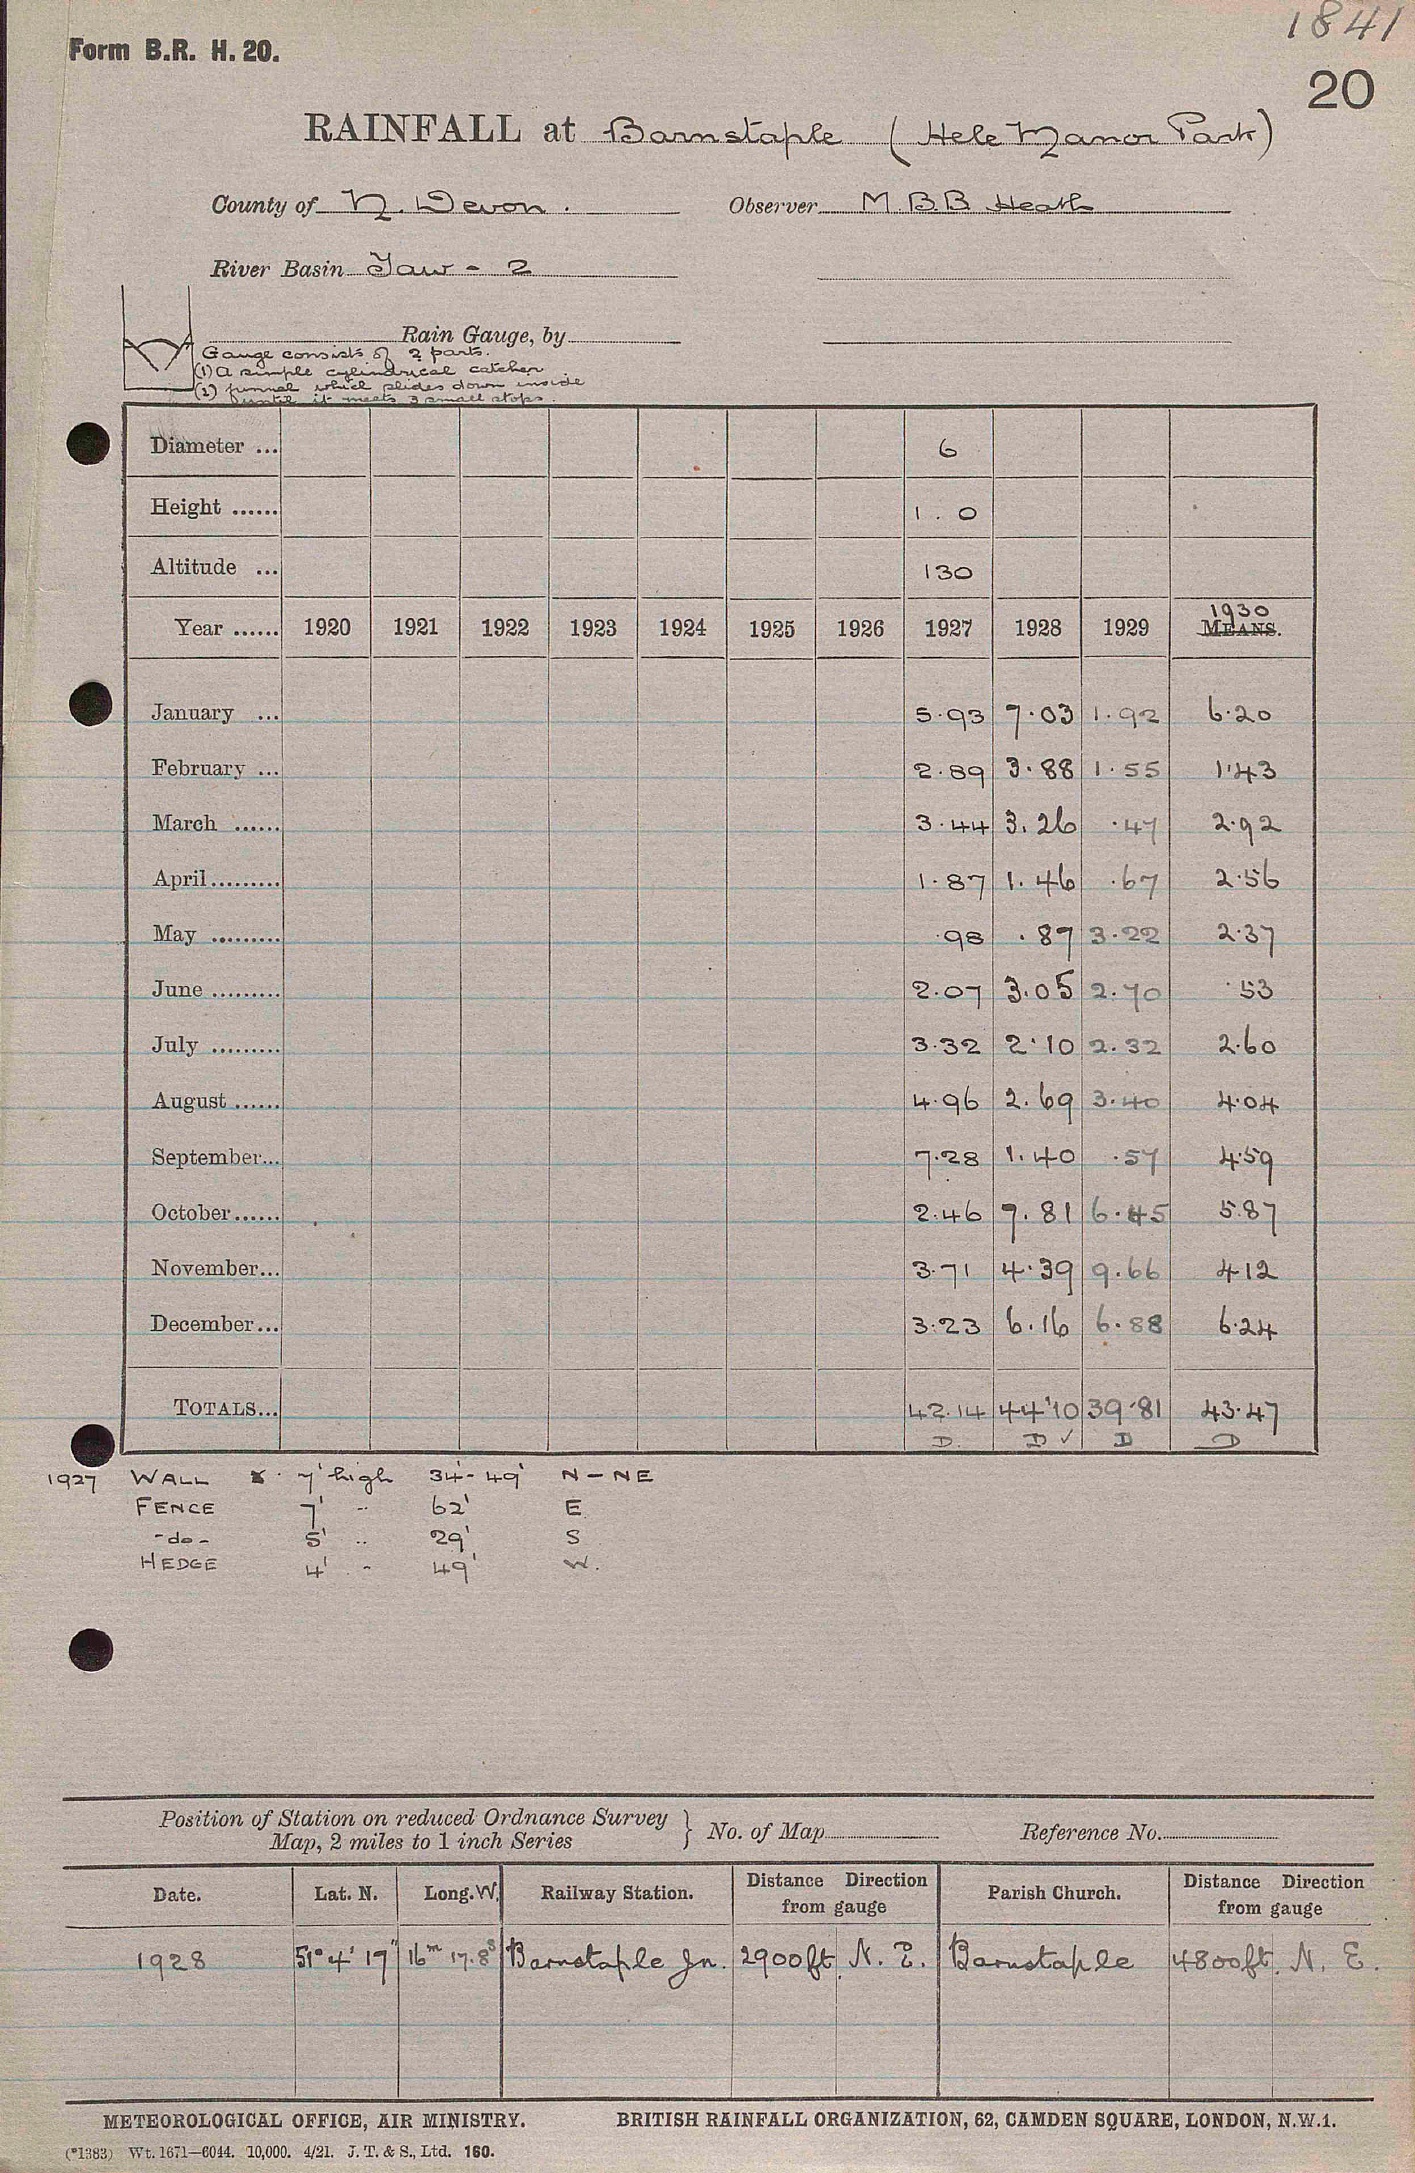 1841
Form B.R. H. 20.
20
RAINFALL at Barnstaple (Hele Manor Park)
County of N. Devon. Observer M B.B. Heath
River Basin Taw - 2
Rain Gauge, by
Gauge consists of 2 parts.
(1) A simple cylindrical catcher
(2) funnel which slides down inside
until it meets 3 small stops.
Diameter ... 6
Height ...... 1.0
Altitude ... 130
Year ...... 1920 1921 1922 1923 1924 1925 1926 1927 1928 1929 1930 MEANS.
January ... 5.93 7.03 1.92 6.20
February ... 2.89 3.88 1.55 1.43
March ...... 3.44 3.26 .47 2.92
April ......... 1.87 1.46 .67 2.56
May ......... .98 .87 3.22 2.37
June ......... 2.07 3.05 2.70 .53
July ......... 3.32 2.10 2.32 2.60
August ...... 4.96 2.69 3.40 4.04
September... 7.28 1.40 .57 4.59
October...... 2.46 7.81 6.45 5.87
November... 3.71 4.39 9.66 4.12
December... 3.23 6.16 6.88 6.24
TOTALS... 42.14 44.10 39.81 43.47
D. D ✓ D D
1927 WALL 7' high 34'-49' N-NE
FENCE 7' " 62' E
-do- 5' " 29' S
HEDGE 4' " 49' W.
Position of Station on reduced Ordnance Survey
Map, 2 miles to 1 inch Series } No. of Map Reference No.
Date. Lat. N. Long. W. Railway Station. Distance Direction from gauge Parish Church. Distance Direction from gauge
1928 51° 4' 17" 16m 17.8s Barnstaple Jn. 2900ft. N. E. Barnstaple 4800ft. N. E.
METEOROLOGICAL OFFICE, AIR MINISTRY. BRITISH RAINFALL ORGANIZATION, 62, CAMDEN SQUARE, LONDON, N.W.1.
(*1383) Wt. 1671—6044. 10,000. 4/21. J. T. & S., Ltd. 160.